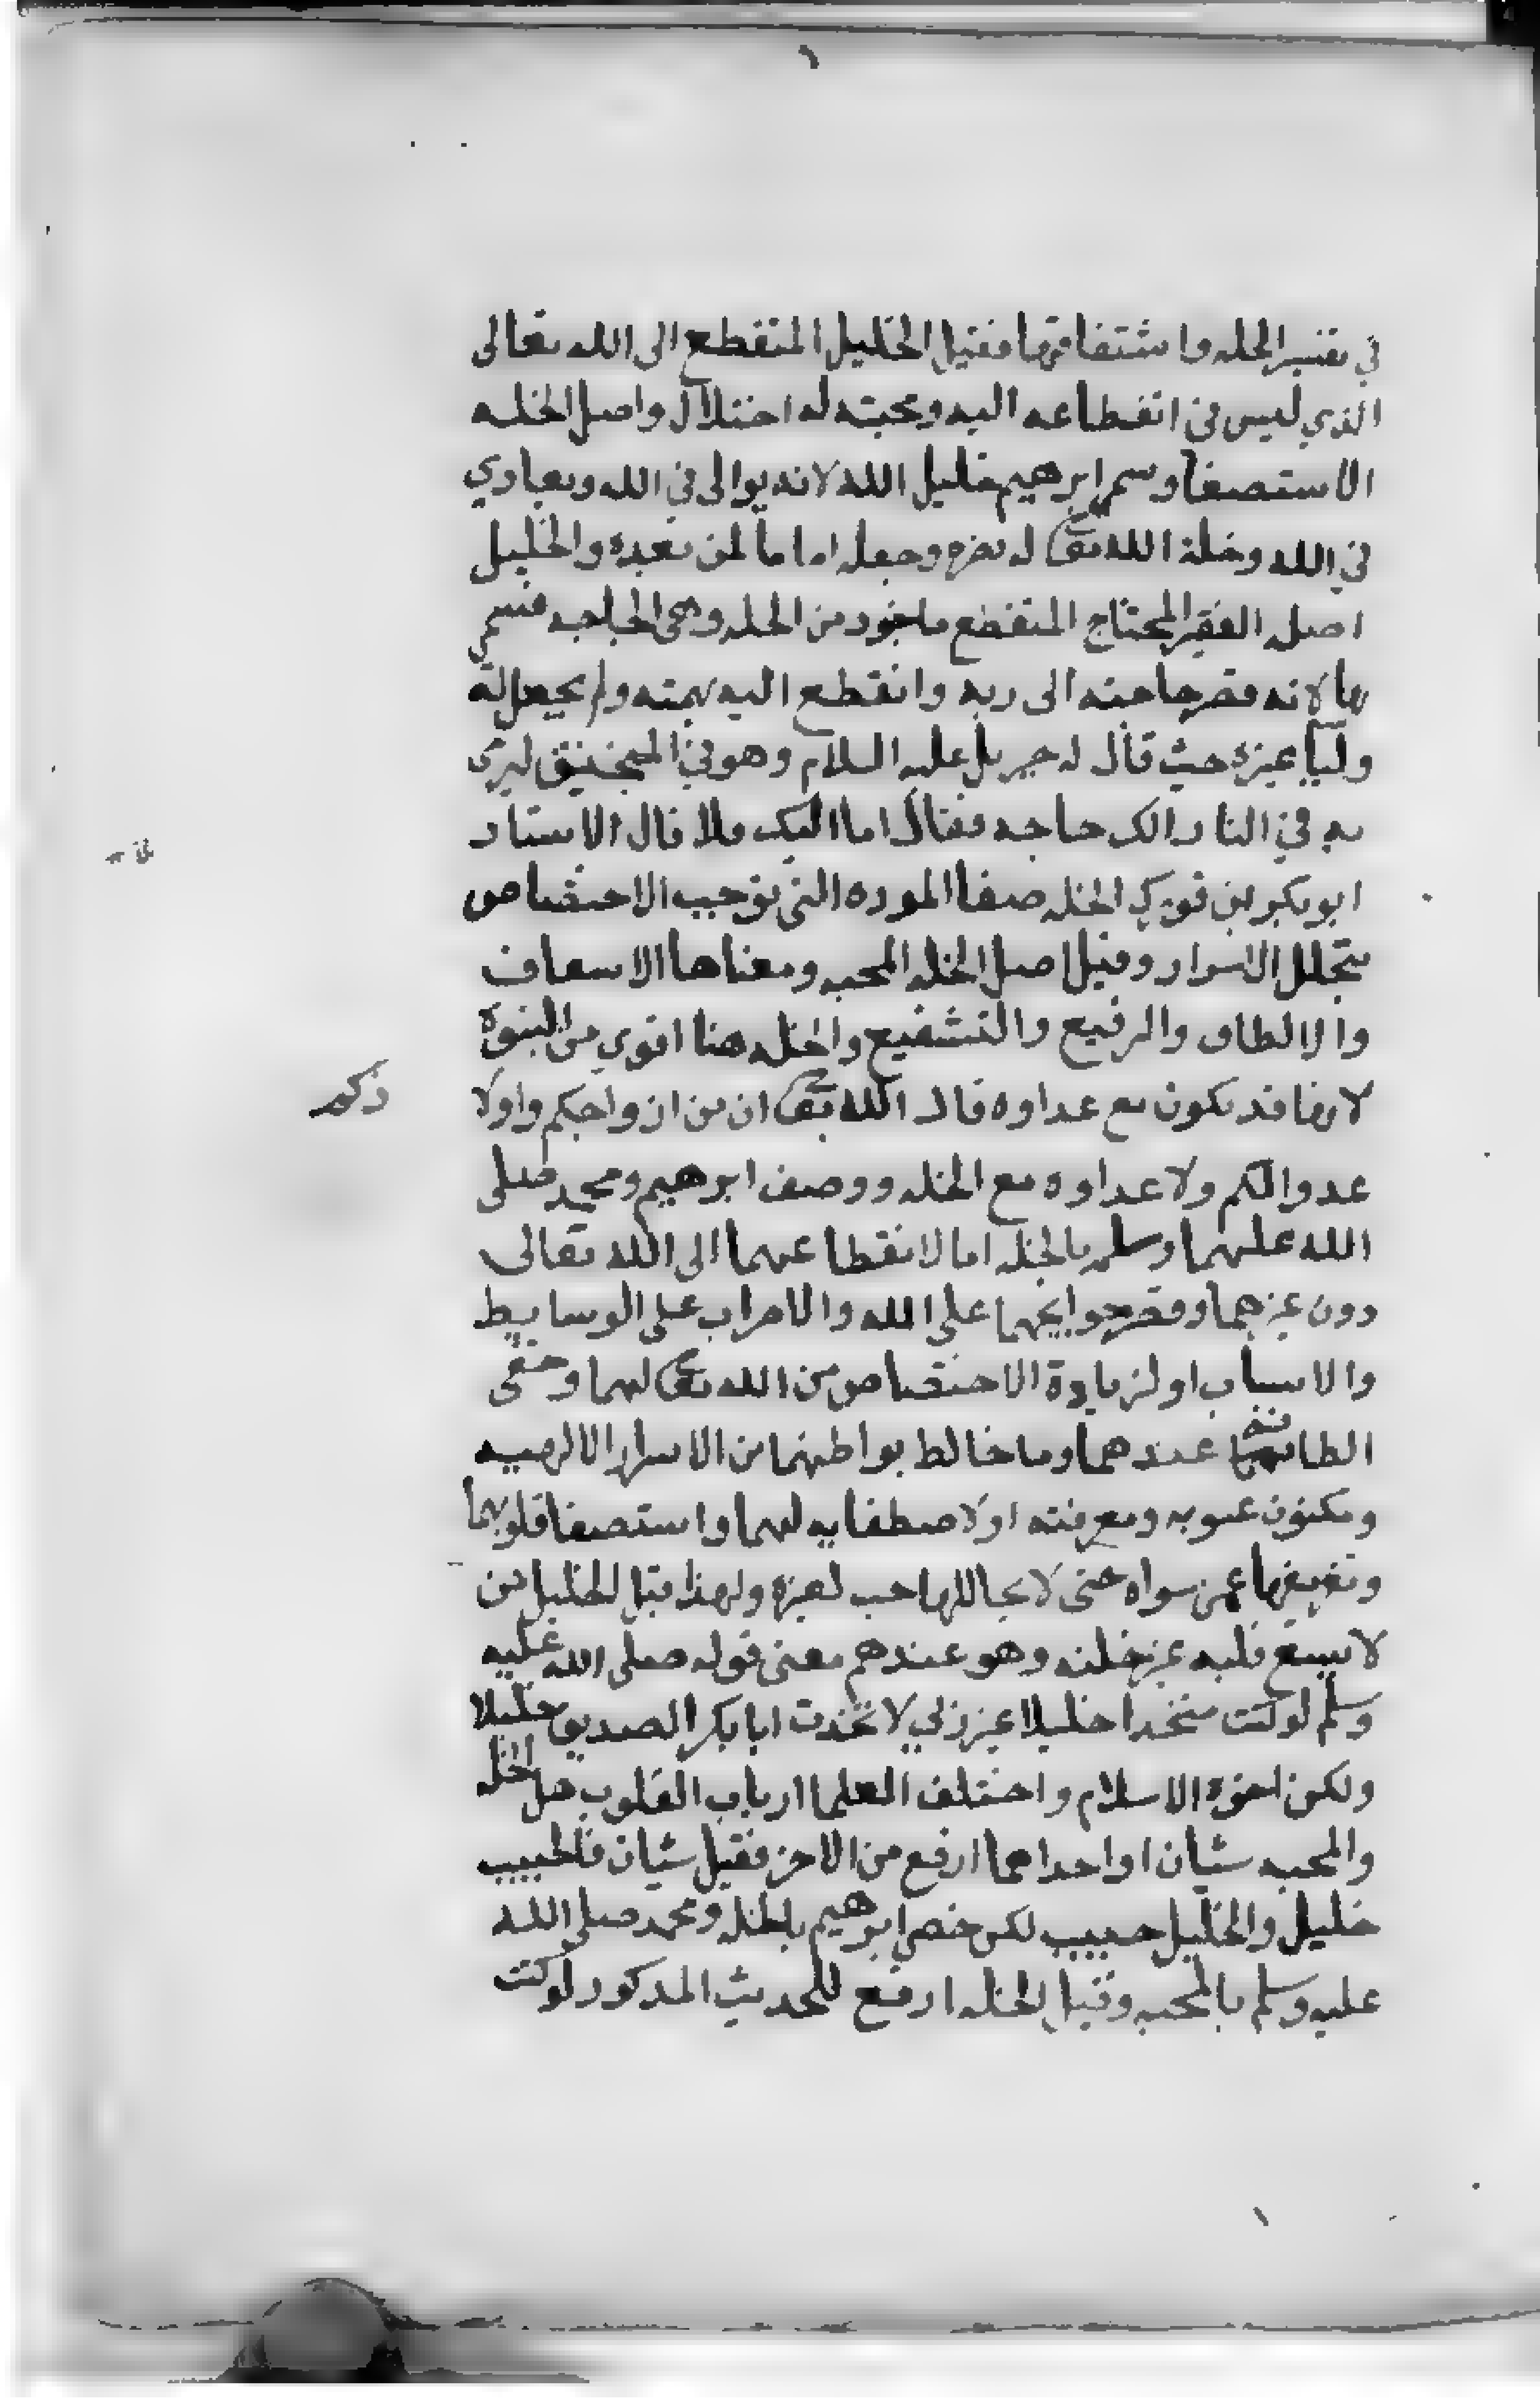 في تفسير الخله واشتقاقها فقيل الخليل المنقطع الى الله تعالى
الذي ليس في انقطاعه اليه ومحبته له اختلال واصل الخله
الاستصفا وسمي ابرهيم خليل الله لانه يوالى في الله ويعادي
في الله وخلة الله تعا له نصره وجعله اماما لمن بعده والخليل
اصله الفقير المحتاج المنقطع ماخود من الخله وهى الحاجه فسمي
بها لانه قصر حاجته الى ربه وانقطع اليه بهمته ولم يجعل له
وليا غيره حيث قال له جبريل عليه السلام وهو في المنجنيق ليرى
به في النار الك حاجه فقال اما اليك فلا قال الاستاد
ابو بكر بن فورك الخله صفا الموده التى توجب الاختصاص
بتخلل الاسرار وقيل اصل الخله المحبه ومعناها الاسعاف
والالطاف والرفيع والتشفيع والخله هنا اقوى من البنوة
لانها قد تكون مع عداوه قال الله تعا ان من ازواجكم واولا
ذكم
عدوا لكم ولا عداوه مع الخله ووصف ابرهيم ومحمد صلى
الله عليهما وسلم بالخله اما لانقطاعهما الى الله تعالى
دون غيرهما وقصر حوايجهما على الله والاضراب على الوسايط
والاسباب او لزيادة الاختصاص من الله تعا لهما وخفى
الطافهما عندهما وما خالط بواطنهما من الاسرار الالهيه
ومكنون غيوبه ومعرفته او لاصطفايه لهما واستصفا قلوبهما
وتفريغها عمن سواه حتى لا يخاللها حب لغيره ولهذا قيل الخليل من
لا يسع قلبه غير خلته وهو عندهم معنى قوله صلى الله عليه
وسلم لو كنت متخدا خليلا غير ربي لاتخدت ابا بكر الصديق خليلا
ولكن اخوة الاسلام واختلف العلما ارباب القلوب هل الخله
والمحبه سيان او احداهما ارفع من الاخر فقيل سيان فالحبيب
خليل والخليل حبيب لكن خص ابرهيم بالخله ومحمد صلى الله
عليه وسلم بالمحبه وقيل الخله ارفع للحديث المدكور لو كنت